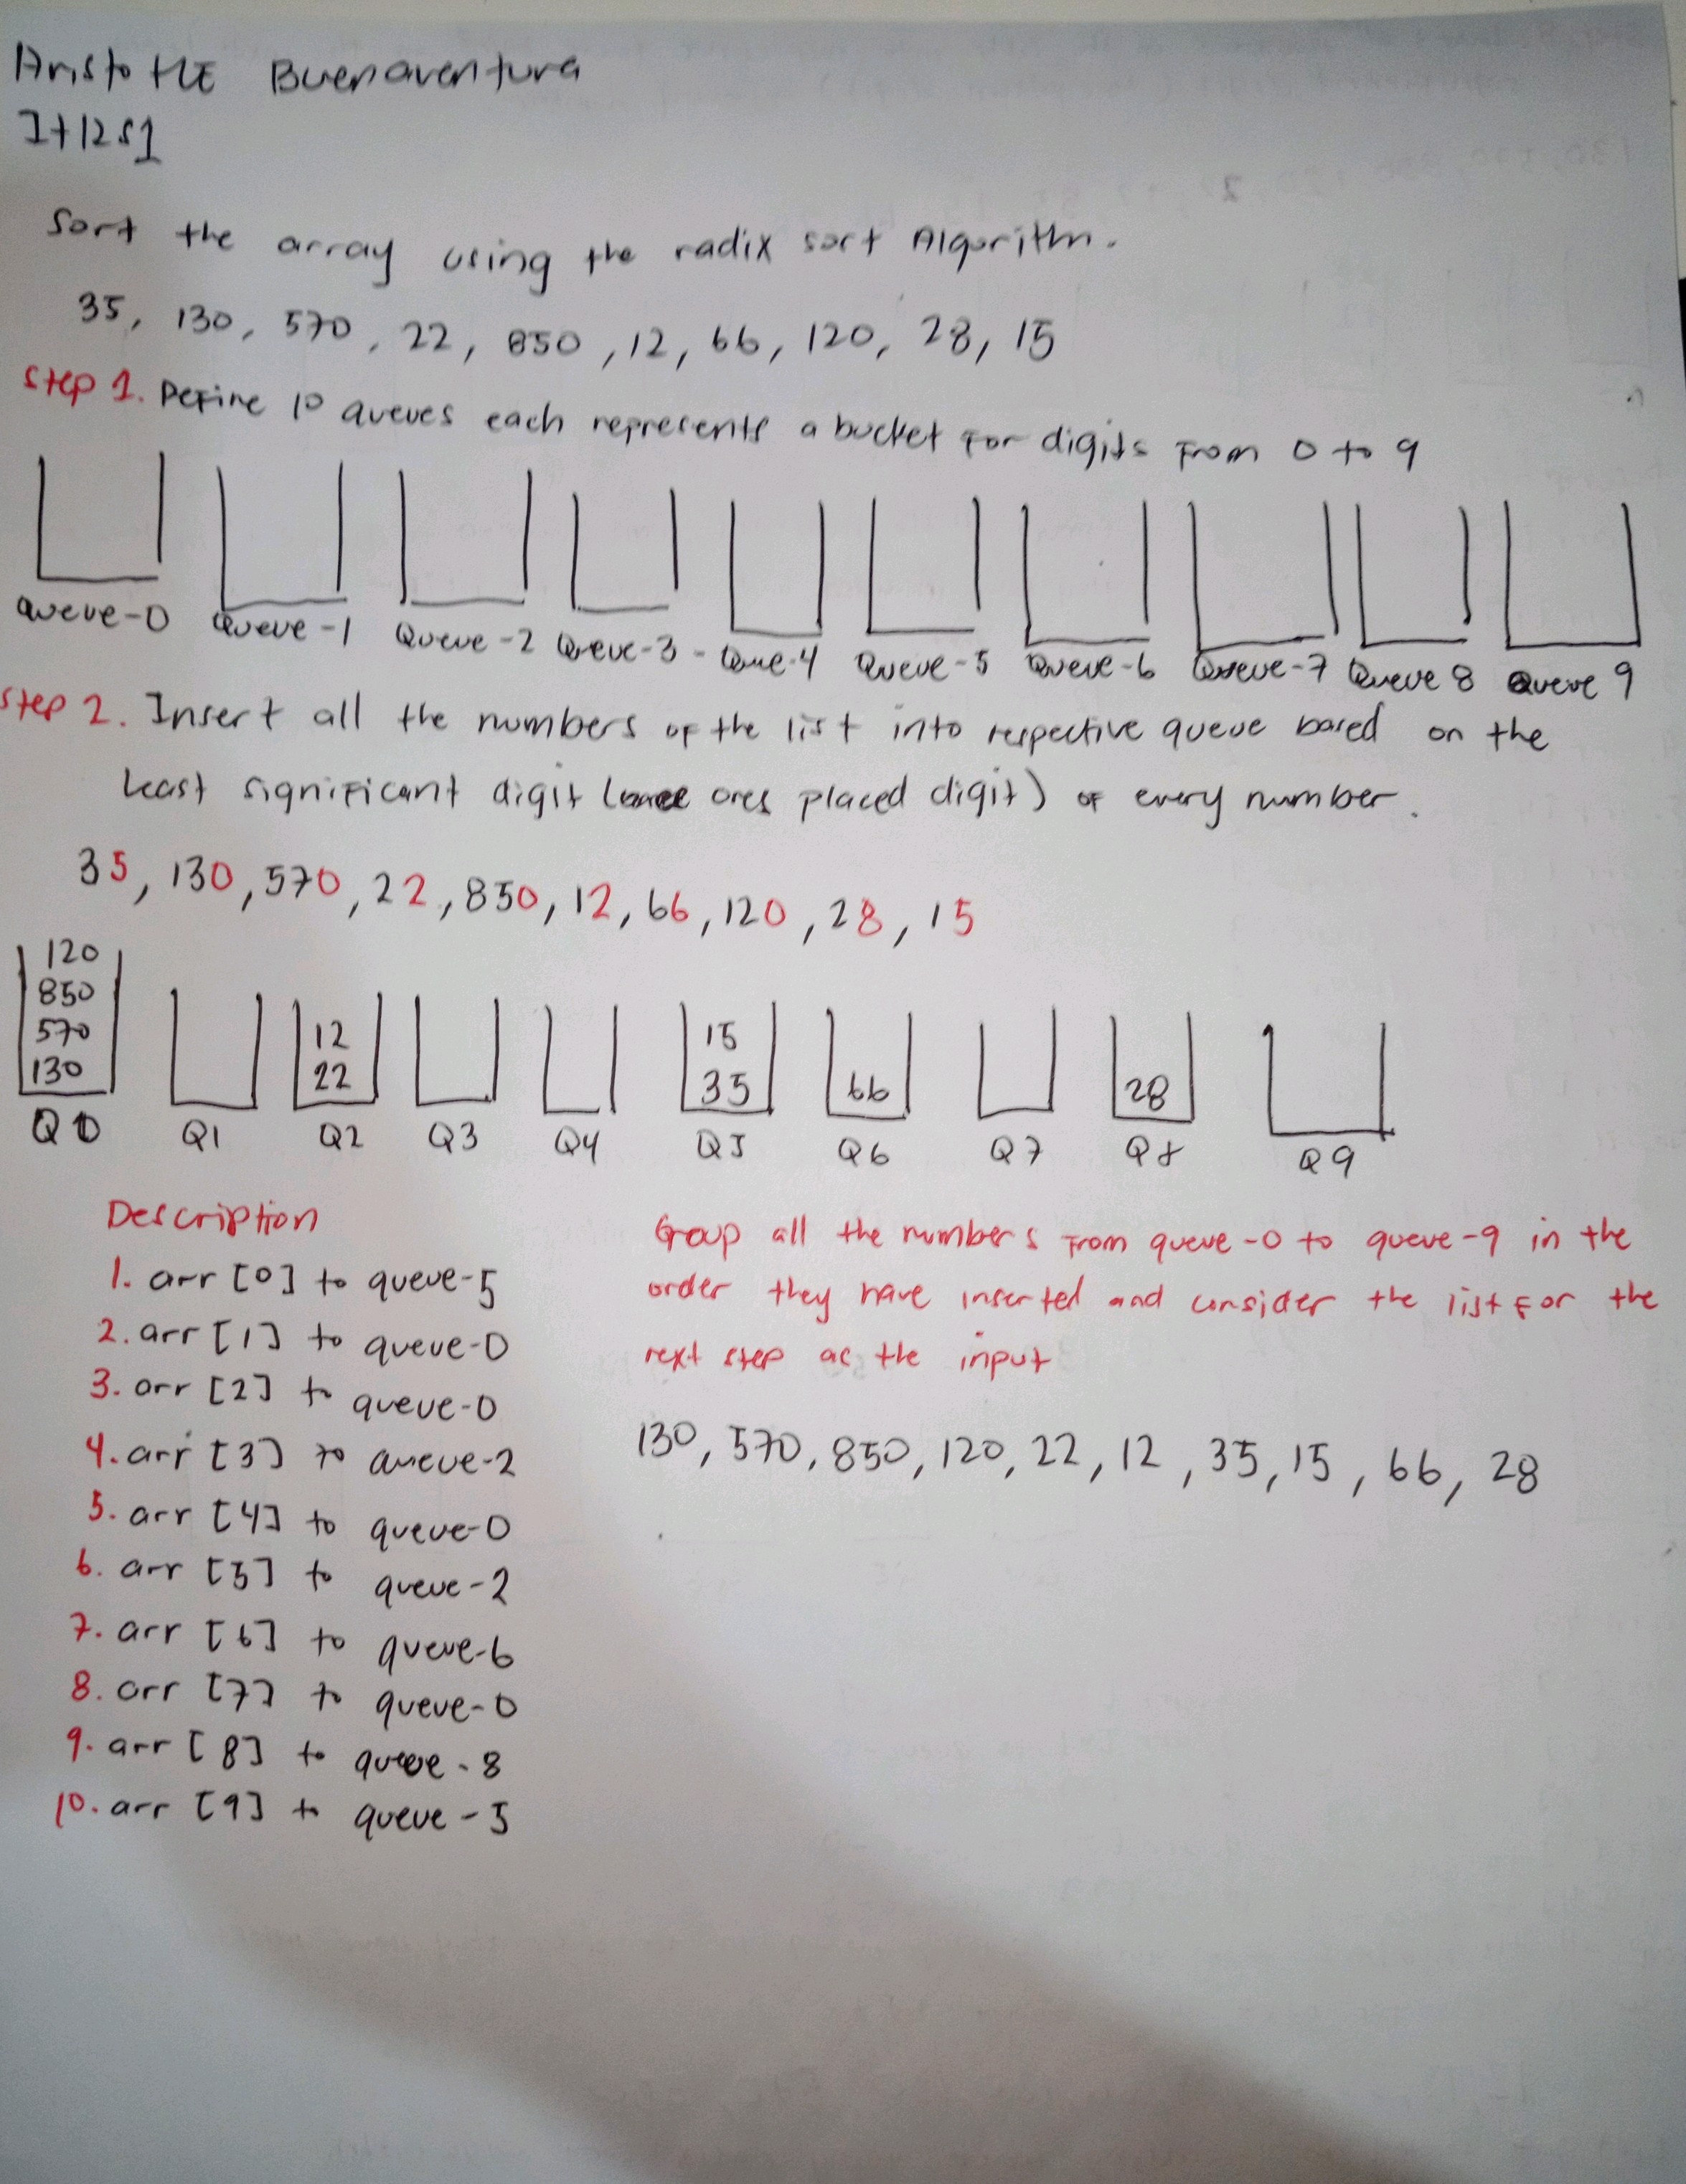 AristotlE Buenaventura
It12S1
Sort the array using the radix sort Algorithm.
35, 130, 570, 22, 850, 12, 66, 120, 28, 15
Step 1. Define 10 queues each represents a bucket For digits From 0 to 9
queue-0 Queue-1 Queue-2 Queue-3 - Que-4 Queue-5 Queue-6 Queue-7 Queue 8 Queue 9
Step 2. Insert all the numbers of the list into respective queue based on the
least significant digit ( ones placed digit) of every number.
35, 130, 570, 22, 850, 12, 66, 120, 28, 15
120
850
570 12 15
130 22 35 66 28
Q0 Q1 Q2 Q3 Q4 Q5 Q6 Q7 Q8 Q9
Description
1. arr [0] to queue-5
2. arr [1] to queue-0
3. arr [2] to queue-0
4. arr [3] to queue-2
5. arr [4] to queue-0
6. arr [5] to queue-2
7. arr [6] to queue-6
8. arr [7] to queue-0
9. arr [8] to queue-8
10. arr [9] to queue-5
Group all the numbers From queue-0 to queue-9 in the
order they have inserted and consider the list For the
next step as the input
130, 570, 850, 120, 22, 12, 35, 15, 66, 28